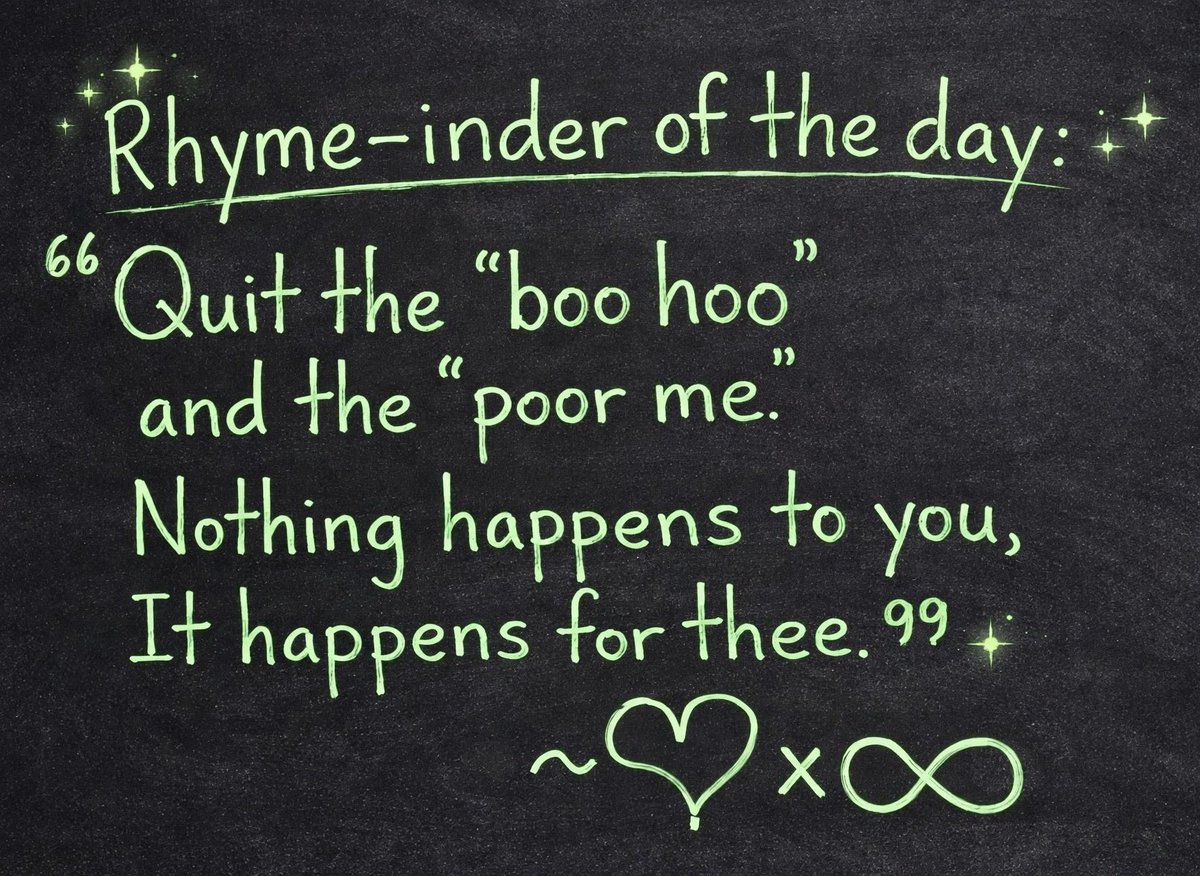 Rhyme-inder of the day:
“Quit the “boo hoo”
and the “poor me.”
Nothing happens to you,
It happens for thee.”
~♡x∞